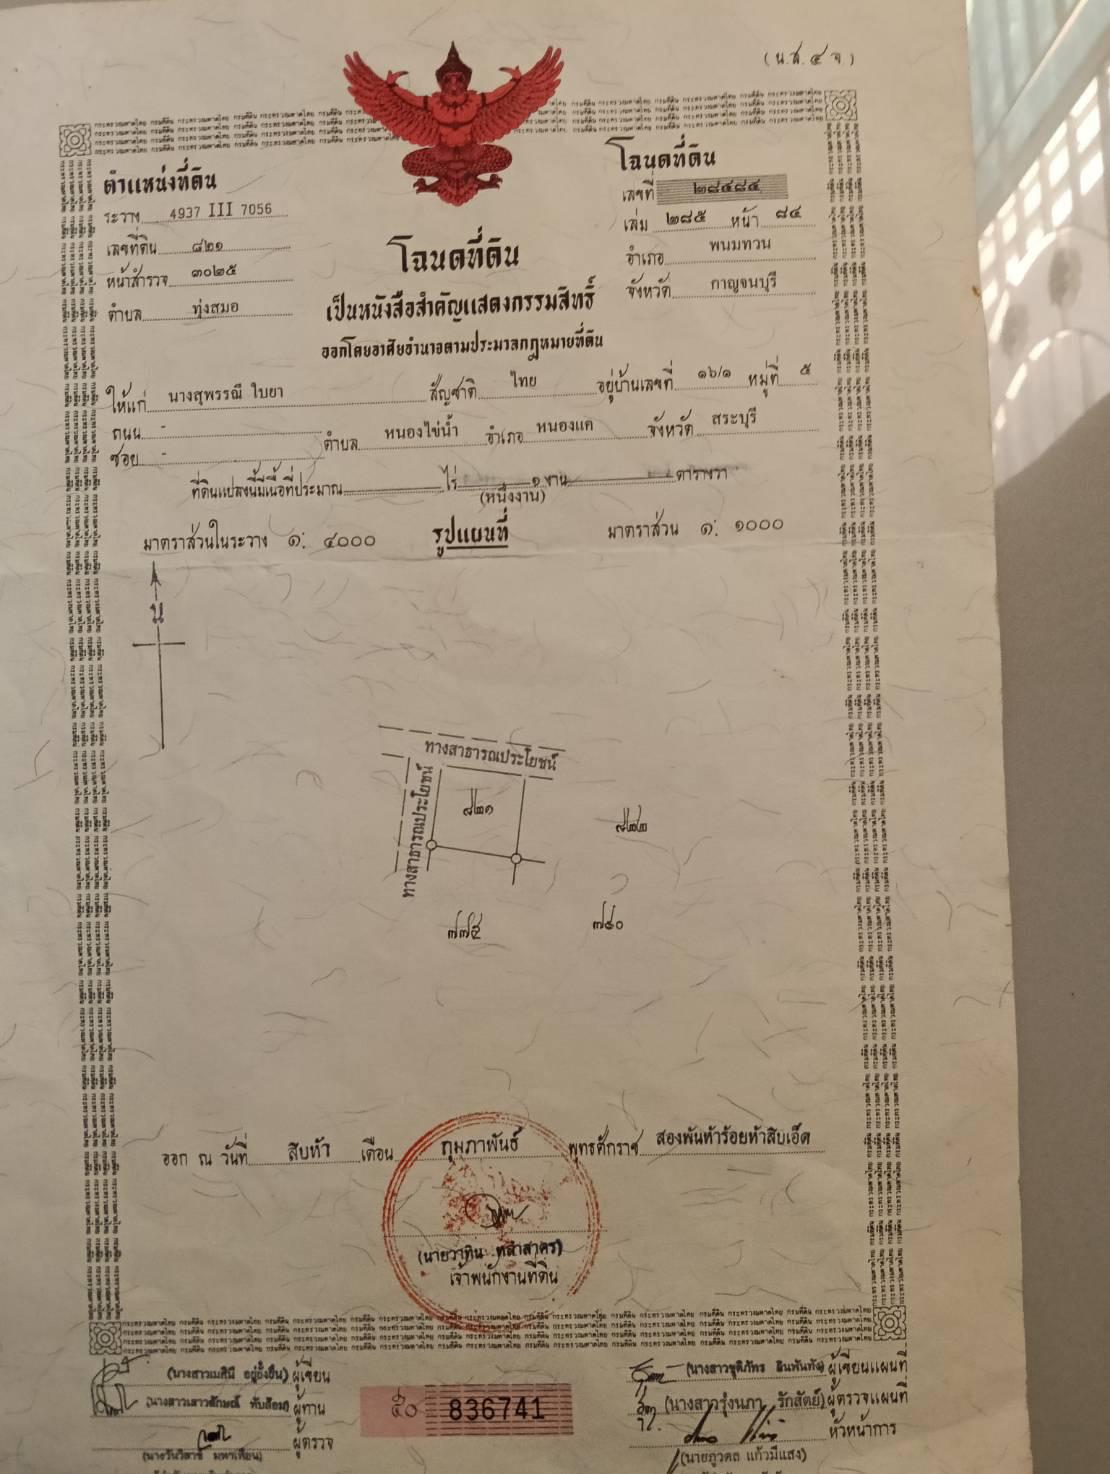 (น.ส.๔ จ.)
ตำแหน่งที่ดิน
ระวาง 4937 III 7056
เลขที่ดิน ๘๒๑
หน้าสำรวจ ๓๐๒๕
ตำบล ทุ่งสมอ
โฉนดที่ดิน
เลขที่ ๒๘๔๘๔
เล่ม ๒๘๕ หน้า ๘๔
อำเภอ พนมทวน
จังหวัด กาญจนบุรี
โฉนดที่ดิน
เป็นหนังสือสำคัญแสดงกรรมสิทธิ์
ออกโดยอาศัยอำนาจตามประมวลกฎหมายที่ดิน
ให้แก่ นางสุพรรณี ใบยา สัญชาติ ไทย อยู่บ้านเลขที่ ๑๖/๑ หมู่ที่ ๕
ถนน - ตำบล หนองไข่น้ำ อำเภอ หนองแค จังหวัด สระบุรี
ซอย -
ที่ดินแปลงนี้มีเนื้อที่ประมาณ ไร่ ๑ งาน ตารางวา
(หนึ่งงาน)
มาตราส่วนในระวาง ๑: ๔๐๐๐ รูปแผนที่ มาตราส่วน ๑: ๑๐๐๐
น
ทางสาธารณประโยชน์
ทางสาธารณประโยชน์
๘๒๑
๘๒๒
๗๗๕
๗๔๐
ออก ณ วันที่ สิบห้า เดือน กุมภาพันธ์ พุทธศักราช สองพันห้าร้อยห้าสิบเอ็ด
เจ้าพนักงานที่ดิน
(นางสาวเมศินี อยู่ยั่งยืน) ผู้เขียน
(นางสาวเสาวลักษณ์ ทับล้อม) ผู้ทาน
ผู้ตรวจ
๕๐ 836741
(นางสาวชุติภัทร อินทันทัง) ผู้เขียนแผนที่
(นางสาวรุ่งนภา รักสัตย์) ผู้ตรวจแผนที่
หัวหน้าการ
(นายภูวดล แก้วมีแสง)